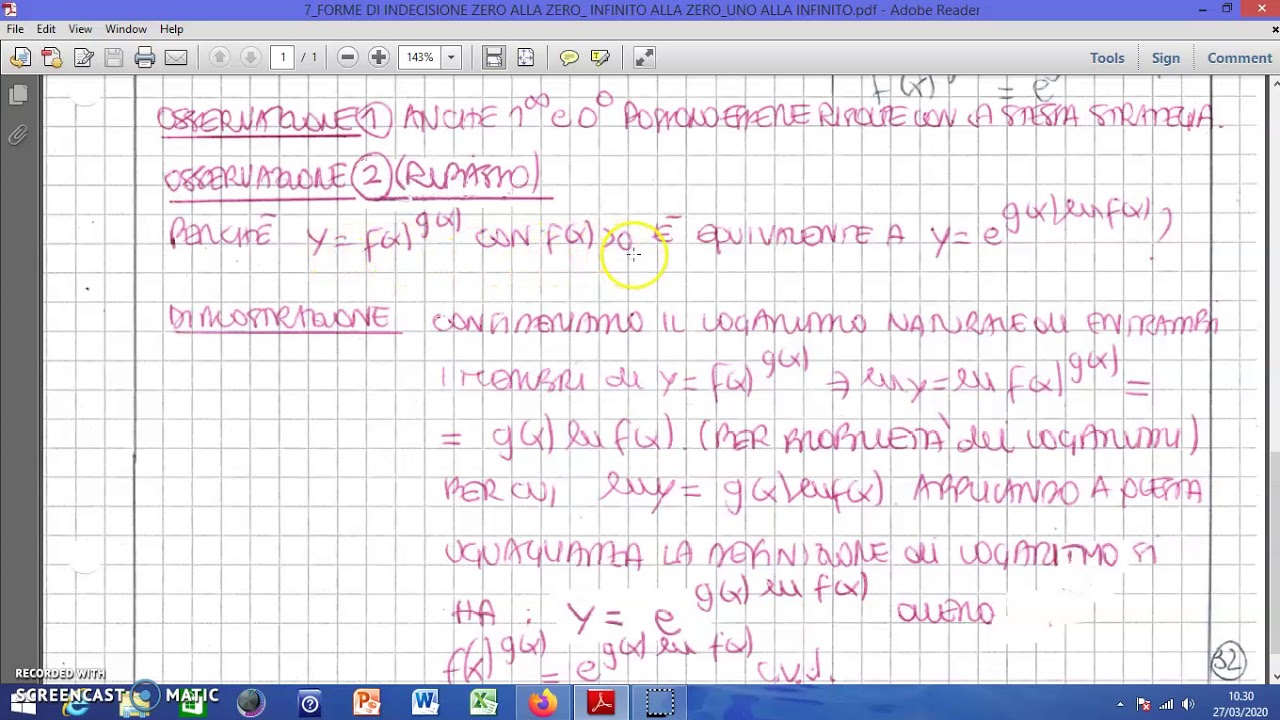 7_FORME DI INDECISIONE ZERO ALLA ZERO_ INFINITO ALLA ZERO_UNO ALLA INFINITO.pdf - Adobe Reader
File Edit View Window Help
1 / 1 143% Tools Sign Comment
f(x) = e
OSSERVAZIONE 1 ANCHE 1^∞ E 0^0 POSSONO ESSERE RISOLTE CON LA STESSA STRATEGIA.
OSSERVAZIONE 2 (RIPASSO)
PERCHÈ y = f(x)^g(x) CON f(x)>0 È EQUIVALENTE A y = e^g(x) ln f(x) ?
DIMOSTRAZIONE CONSIDERIAMO IL LOGARITMO NATURALE di ENTRAMBI
I MEMBRI di y = f(x)^g(x) ⇒ ln y = ln f(x)^g(x) =
= g(x) ln f(x). (PER PROPRIETÀ dei LOGARITMI)
PER CUI, ln y = g(x) ln f(x). APPLICANDO A QUESTA
UGUAGLIANZA LA DEFINIZIONE di LOGARITMO SI
HA : y = e^g(x) ln f(x) OVVERO
f(x)^g(x) = e^g(x) ln f(x) c.v.d.
32
RECORDED WITH
SCREENCAST MATIC
10.30
27/03/2020